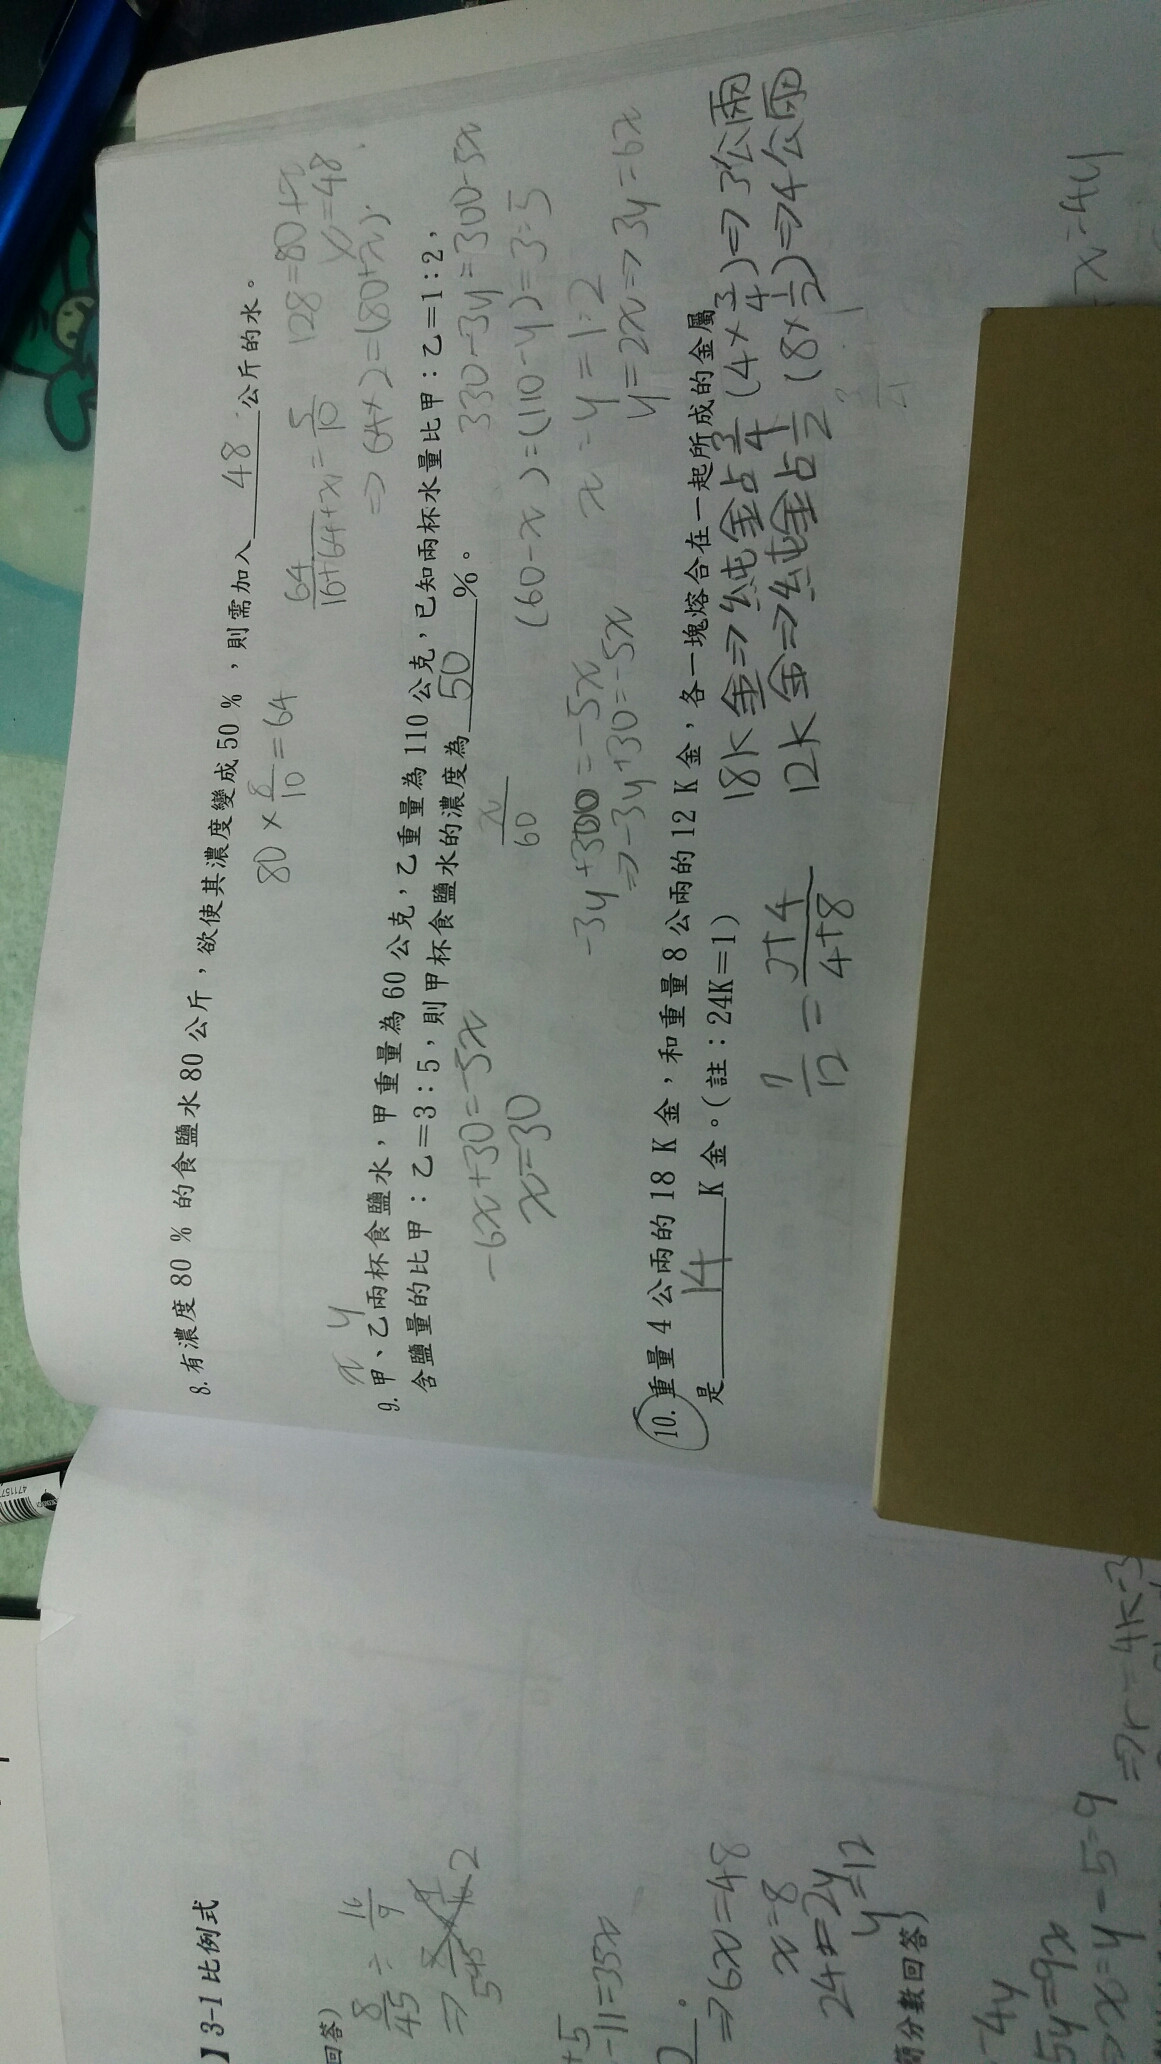 8. 有濃度 80 % 的食鹽水 80 公斤，欲使其濃度變成 50 % ，則需加入 48 公斤的水。
80 × 8/10 = 64
64/16+64+x = 5/10
128=80+x
x=48
⇒ 64×2=(80+x)
x y
9. 甲、乙兩杯食鹽水，甲重量為 60 公克，乙重量為 110 公克，已知兩杯水量比甲：乙＝1：2，
含鹽量的比甲：乙＝3：5，則甲杯食鹽水的濃度為 50 %。
330-3y=300-5x
x/60
(60-x):(110-y)=3:5
-6x+30=-5x
x=30
x:y=1:2
-3y+300=-5x
y=2x⇒3y=6x
⇒-3y+30=-5x
10. 重量 4 公兩的 18 K 金，和重量 8 公兩的 12 K 金，各一塊熔合在一起所成的金屬
是 14 K 金。(註：24K＝1)
18k金⇒純金占3/4 (4×3/4)⇒3公兩
12k金⇒純金占1/2 (8×1/2)⇒4公兩
7/12 = 3+4/4+8
x=4y
】3-1 比例式
回答）
8/45 ÷ 16/9
-11=35x
⇒6x=48
x=8
24=2y
y=12
簡分數回答）
-4y
5y=9x
x=y-5=9